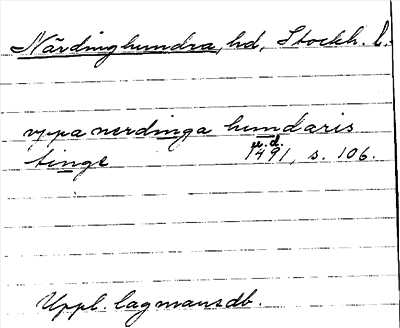 Närdinghundra, hd, Stockh. l.
vppa nerdinga hundaris
tinge u.d. 1491, s. 106.
Uppl. lagmansdb.